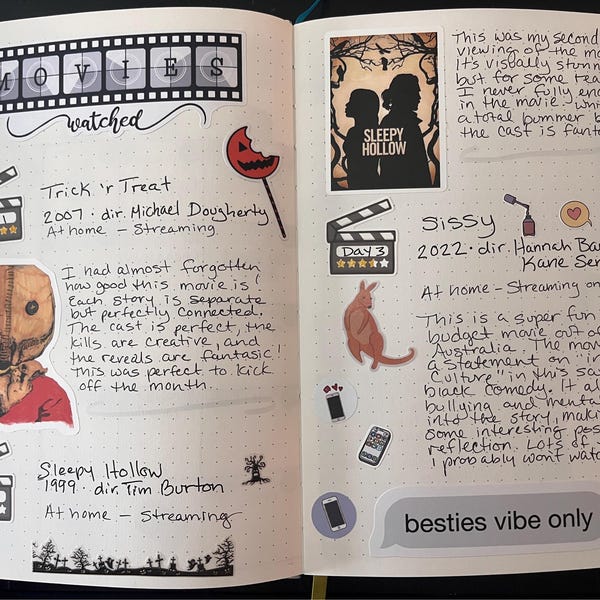 MOVIES
watched
Trick 'r Treat
2007 · dir. Michael Dougherty
At home – Streaming
I had almost forgotten
how good this movie is!
Each story is separate
but perfectly connected.
The cast is perfect, the
kills are creative, and
the reveals are fantasic!
This was perfect to kick
off the month.
Sleepy Hollow
1999 · dir. Tim Burton
At home – Streaming
SLEEPY
HOLLOW
This was my second
viewing of the
it's visually
but for some
I never fully
in the movie.
a total bummer
the cast is
Sissy
Day 3
2022 · dir. Hannah
Kane
At home – Streaming on
This is a super fun
budget movie out of
Australia. The
a statement on
culture" in this
black comedy. It
bullying and
into the story,
some interesting
reflection. Lots of
I probably won't
besties vibe only